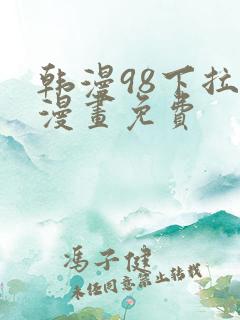 韩漫98下拉
漫畫免费
冯子健
未经同意禁止转载